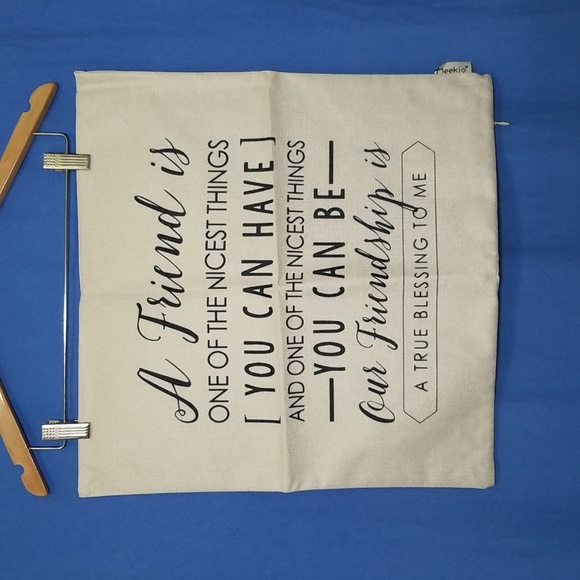 A Friend is
ONE OF THE NICEST THINGS
[ YOU CAN HAVE ]
AND ONE OF THE NICEST THINGS
—YOU CAN BE—
Our Friendship is
A TRUE BLESSING TO ME
Meekio